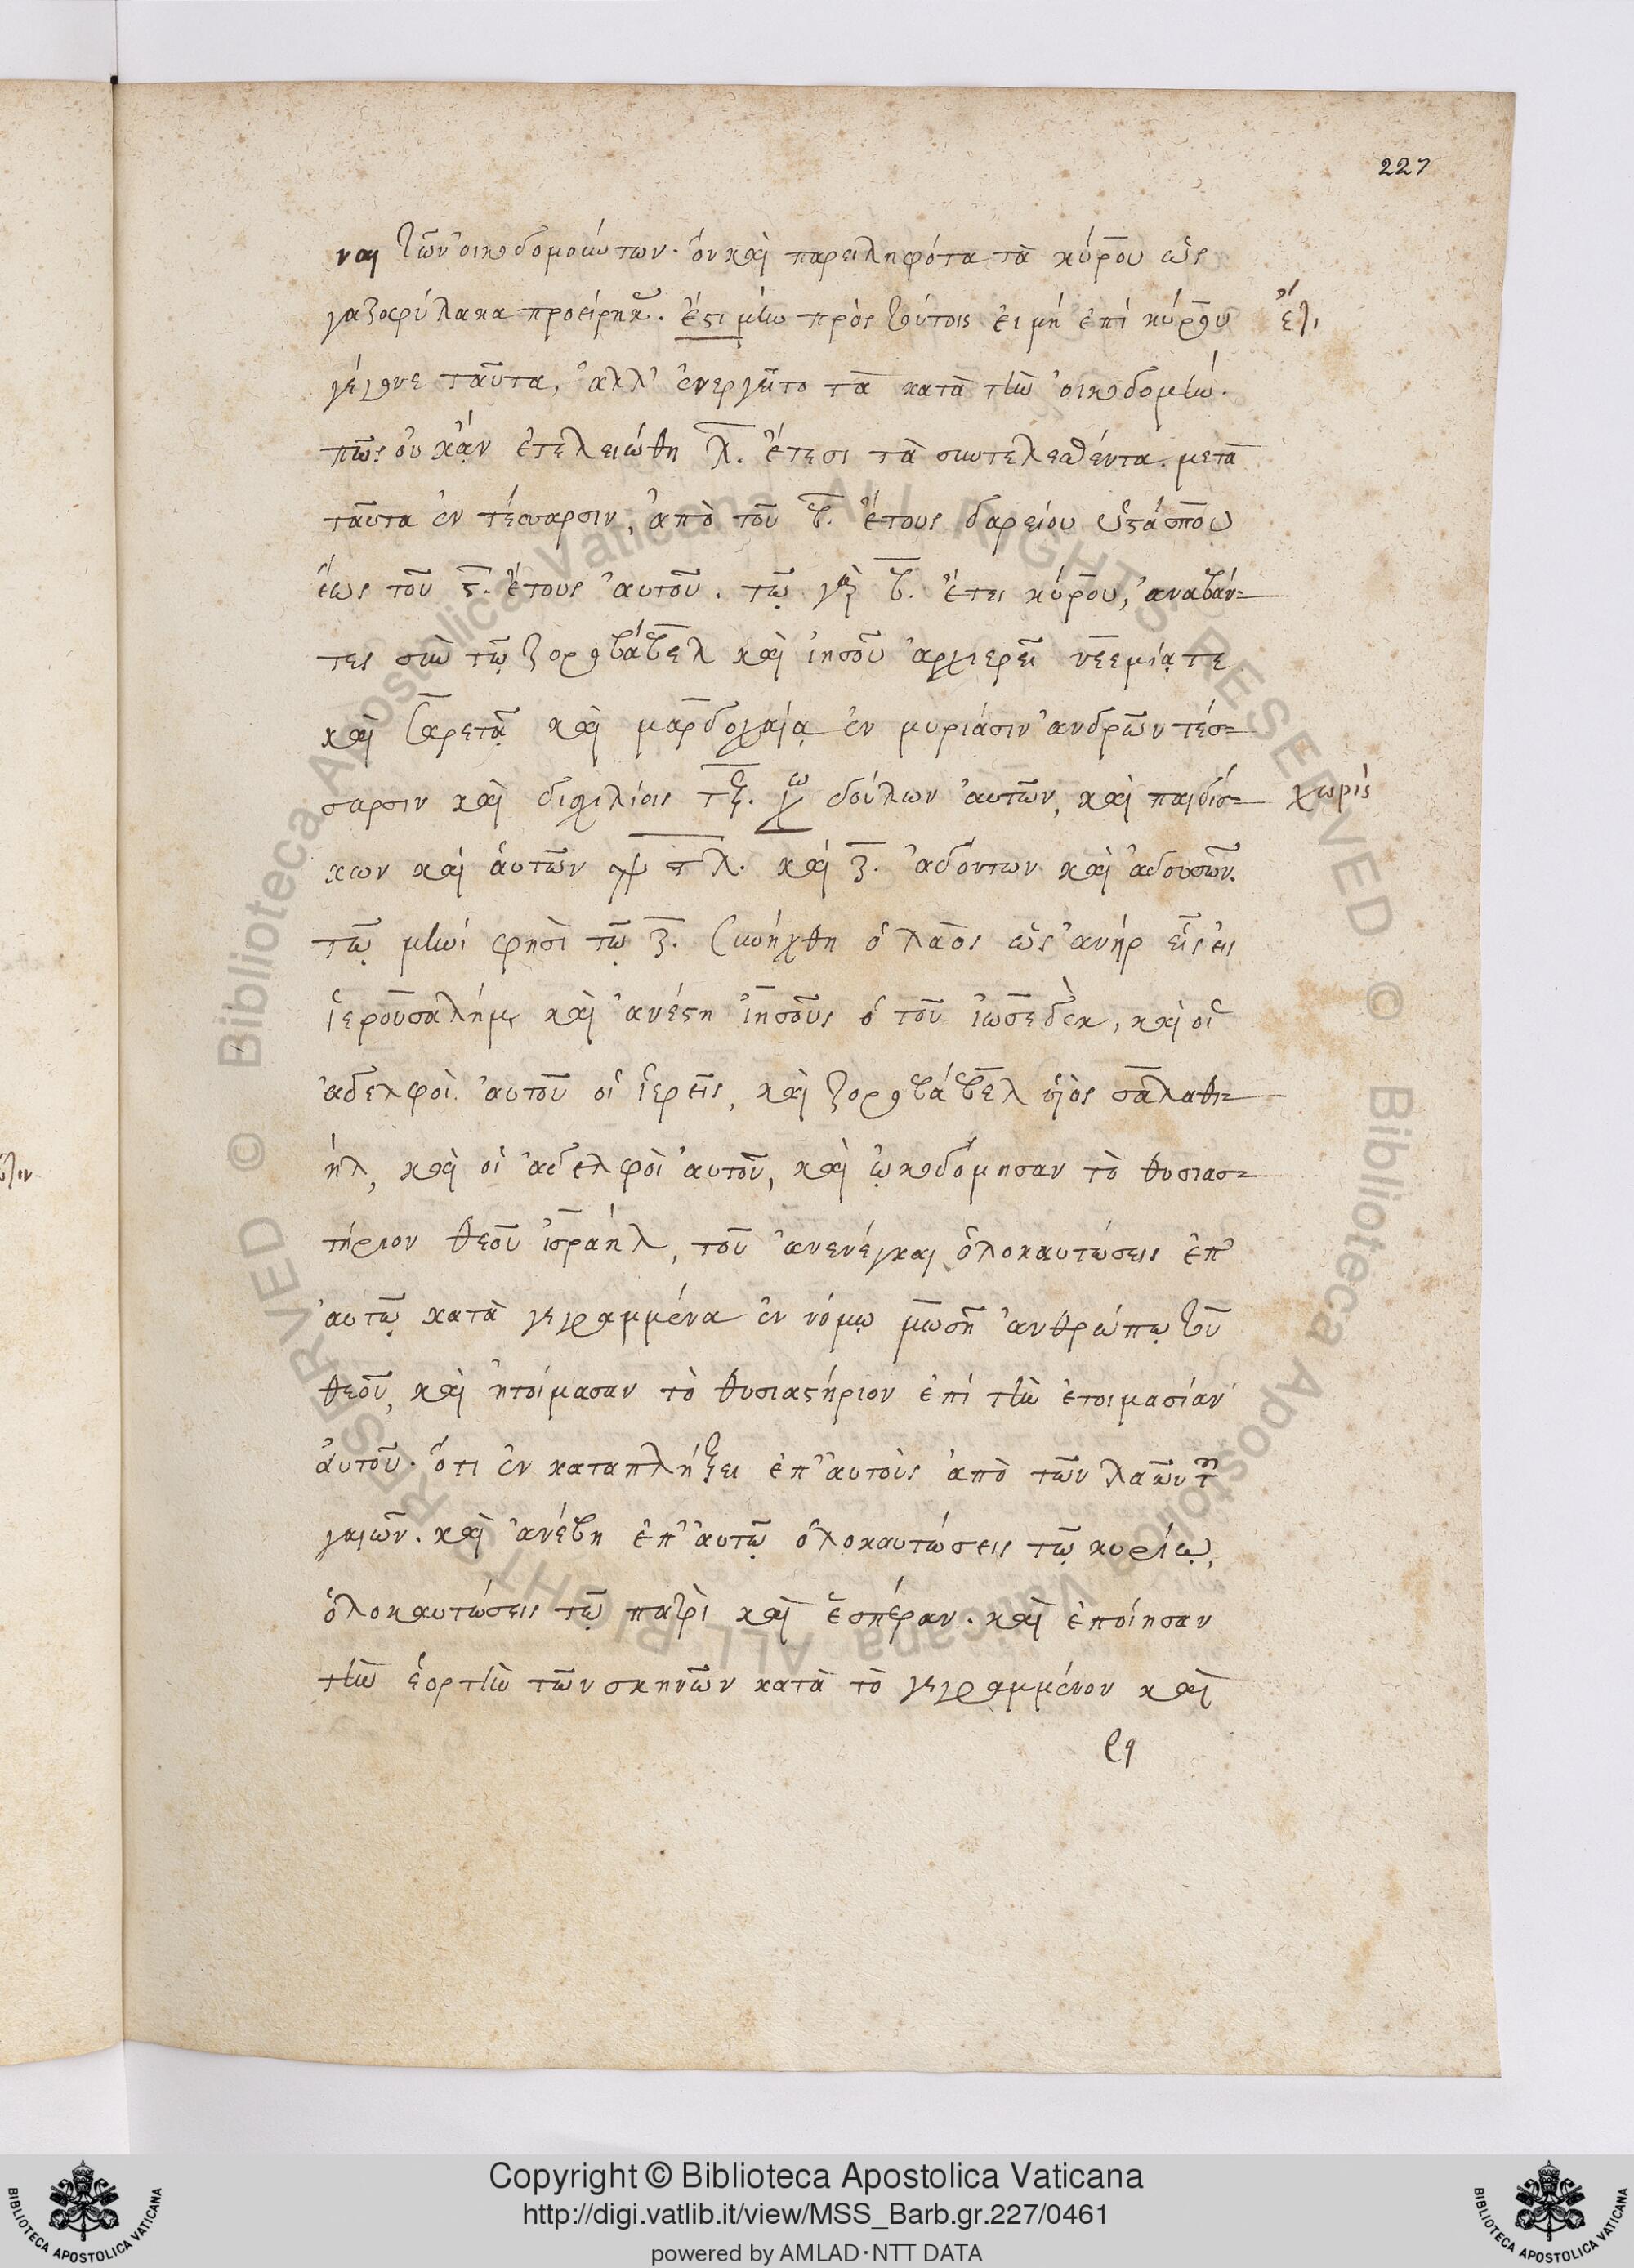 227
ναι τῶν οἰκοδομούντων· ὃν καὶ παρειληφότα τὰ κύρου ὡς
γαζαφύλακα προείρηκ. ἔστι μὴν πρὸς τούτοις εἰ μὴ ἐπὶ κύρου ἔτι
γέγονε ταῦτα, ἀλλ' ἐνεργεῖτο τὰ κατὰ τὴν οἰκοδομήν.
πῶς οὐ κἂν ἐτελειώθη λ. ἔτεσι τὰ συντελεσθέντα. μετὰ
ταῦτα ἐν τέσσαρσιν, ἀπὸ τοῦ β. ἔτους δαρείου ὑστάσπου
ἕως τοῦ ϛ. ἔτους αὐτοῦ. τῷ γὰρ β. ἔτει κύρου, ἀναβάν=
τες σὺν τῷ ζοροβάβελ καὶ ἰησοῦ ἀρχιερεῖ νεεμίᾳ τε
καὶ βαρετᾷ καὶ μαρδοχαίᾳ ἐν μυριάσιν ἀνδρῶν τέσ=
σαρσιν καὶ διχιλίοις τξ. χω δούλων αὐτῶν, καὶ παιδίσ= χωρὶς
κων καὶ αὐτῶν τλ. καὶ ζ. ᾀδόντων καὶ ᾀδουσῶν.
τῷ μηνί φησὶ τῷ ζ. συνήχθη ὁ λαὸς ὡς ἀνὴρ εἷς εἰς
ἱερουσαλήμ, καὶ ἀνέστη ἰησοῦς ὁ τοῦ ἰωσεδὲκ, καὶ οἱ
ἀδελφοὶ αὐτοῦ οἱ ἱερεῖς, καὶ ζοροβάβελ υἱὸς σαλαθι=
ήλ, καὶ οἱ ἀδελφοὶ αὐτοῦ, καὶ ᾠκοδόμησαν τὸ θυσιασ=
τήριον θεοῦ ἰσραήλ, τοῦ ἀνενέγκαι ὁλοκαυτώσεις ἐπ'
αὐτῷ κατὰ γεγραμμένα ἐν νόμῳ μωσῆ ἀνθρώπῳ τοῦ
θεοῦ, καὶ ἡτοίμασαν τὸ θυσιαστήριον ἐπὶ τὴν ἑτοιμασίαν
αὐτοῦ· ὅτι ἐν καταπλήξει ἐπ' αὐτοὺς ἀπὸ τῶν λαῶν τῶν
γαιῶν. καὶ ἀνέβη ἐπ' αὐτῷ ὁλοκαυτώσεις τῷ κυρίῳ,
ὁλοκαυτώσεις τῷ πατρὶ καὶ ἑσπέραν. καὶ ἐποίησαν
τὴν ἑορτὴν τῶν σκηνῶν κατὰ τὸ γεγραμμένον καὶ
Copyright © Biblioteca Apostolica Vaticana
http://digi.vatlib.it/view/MSS_Barb.gr.227/0461
powered by AMLAD·NTT DATA
BIBLIOTECA APOSTOLICA VATICANA
BIBLIOTECA APOSTOLICA VATICANA